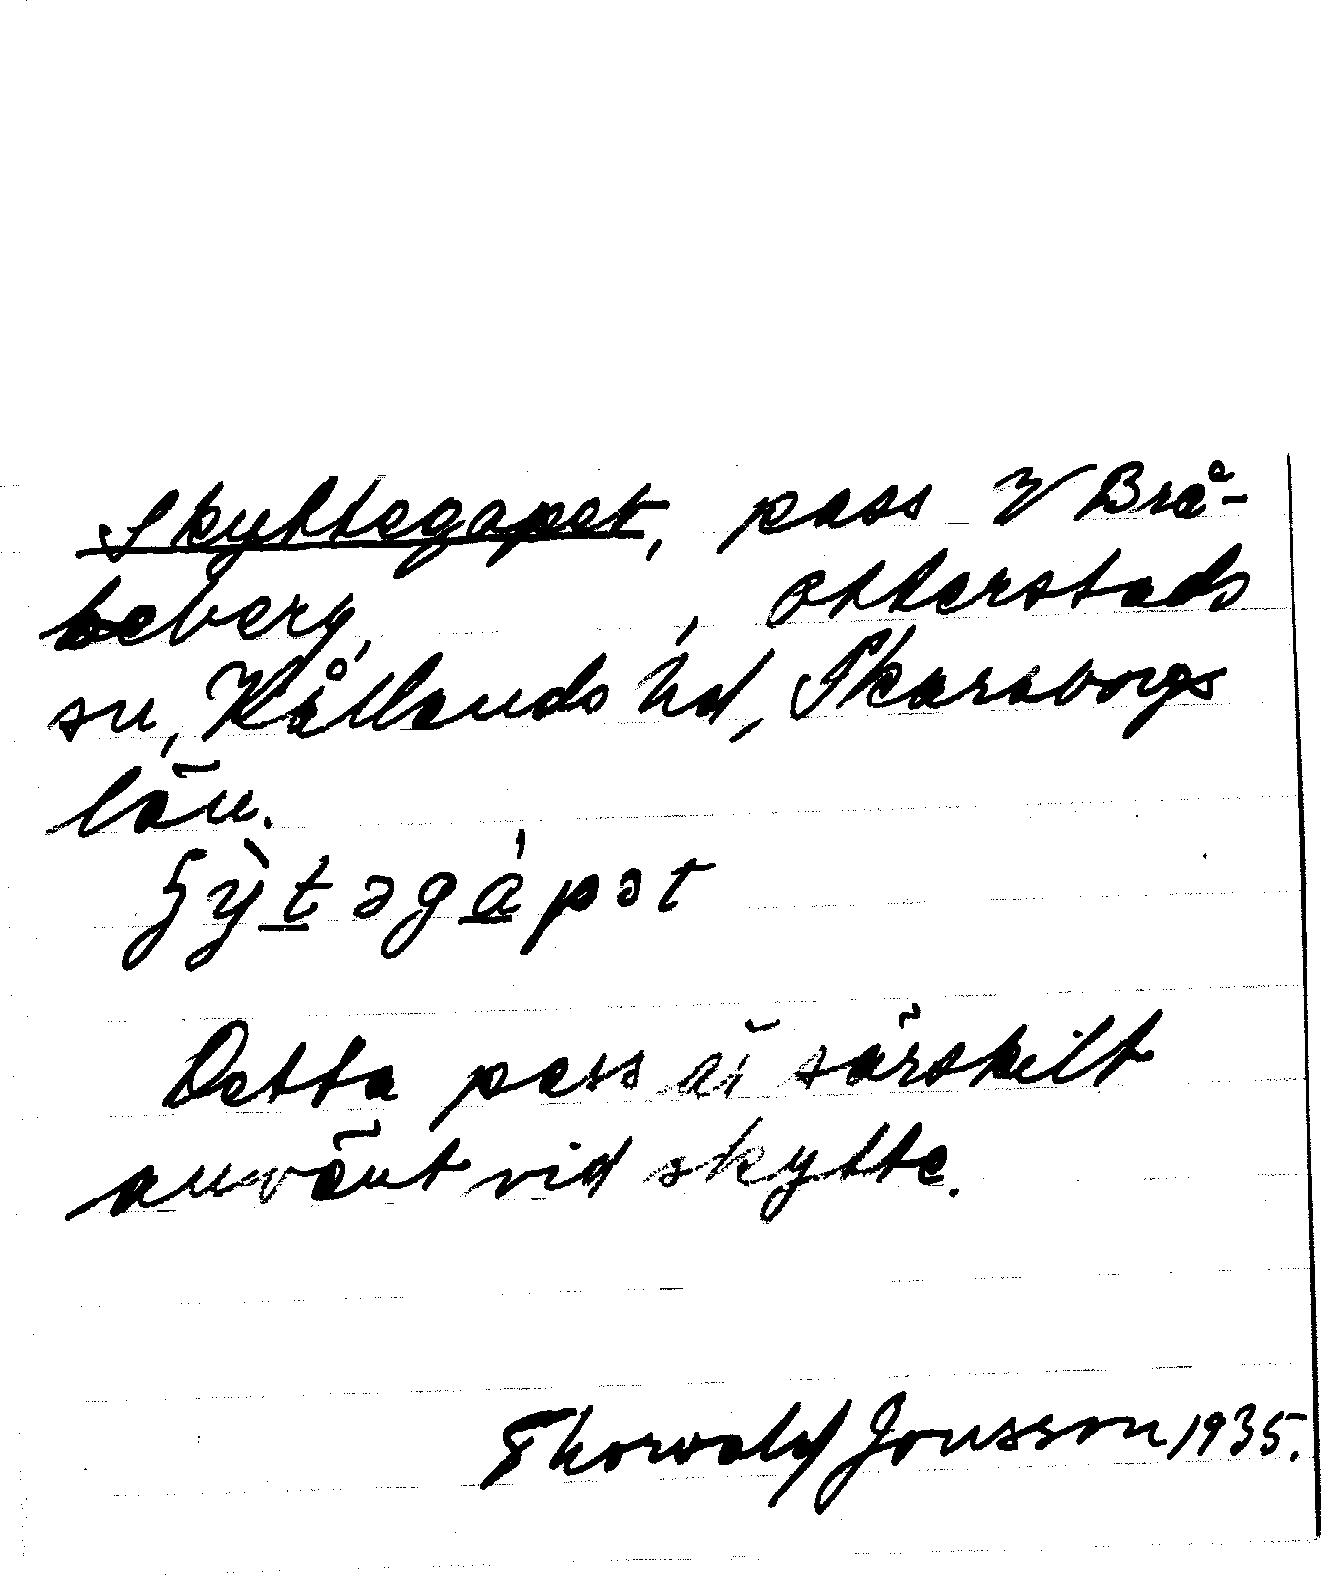 Skyttegapet, pass V Brå-
beberg, , Otterstads
sn, Kållands hd, Skaraborgs
län.
ʂỳtəgápət
Detta pass är särskilt
använt vid skytte.
Thorvald Jonsson 1935.